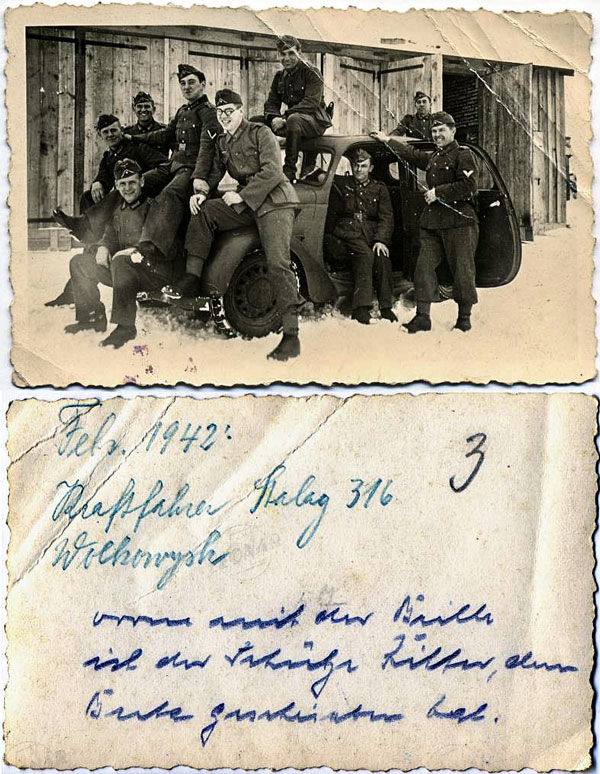 Febr. 1942:
3
Kraftfahrer Stalag 316
Wolkowysk
vorne mit der Brille
ist der Schütze Zilter, dem
geschrieben hat.